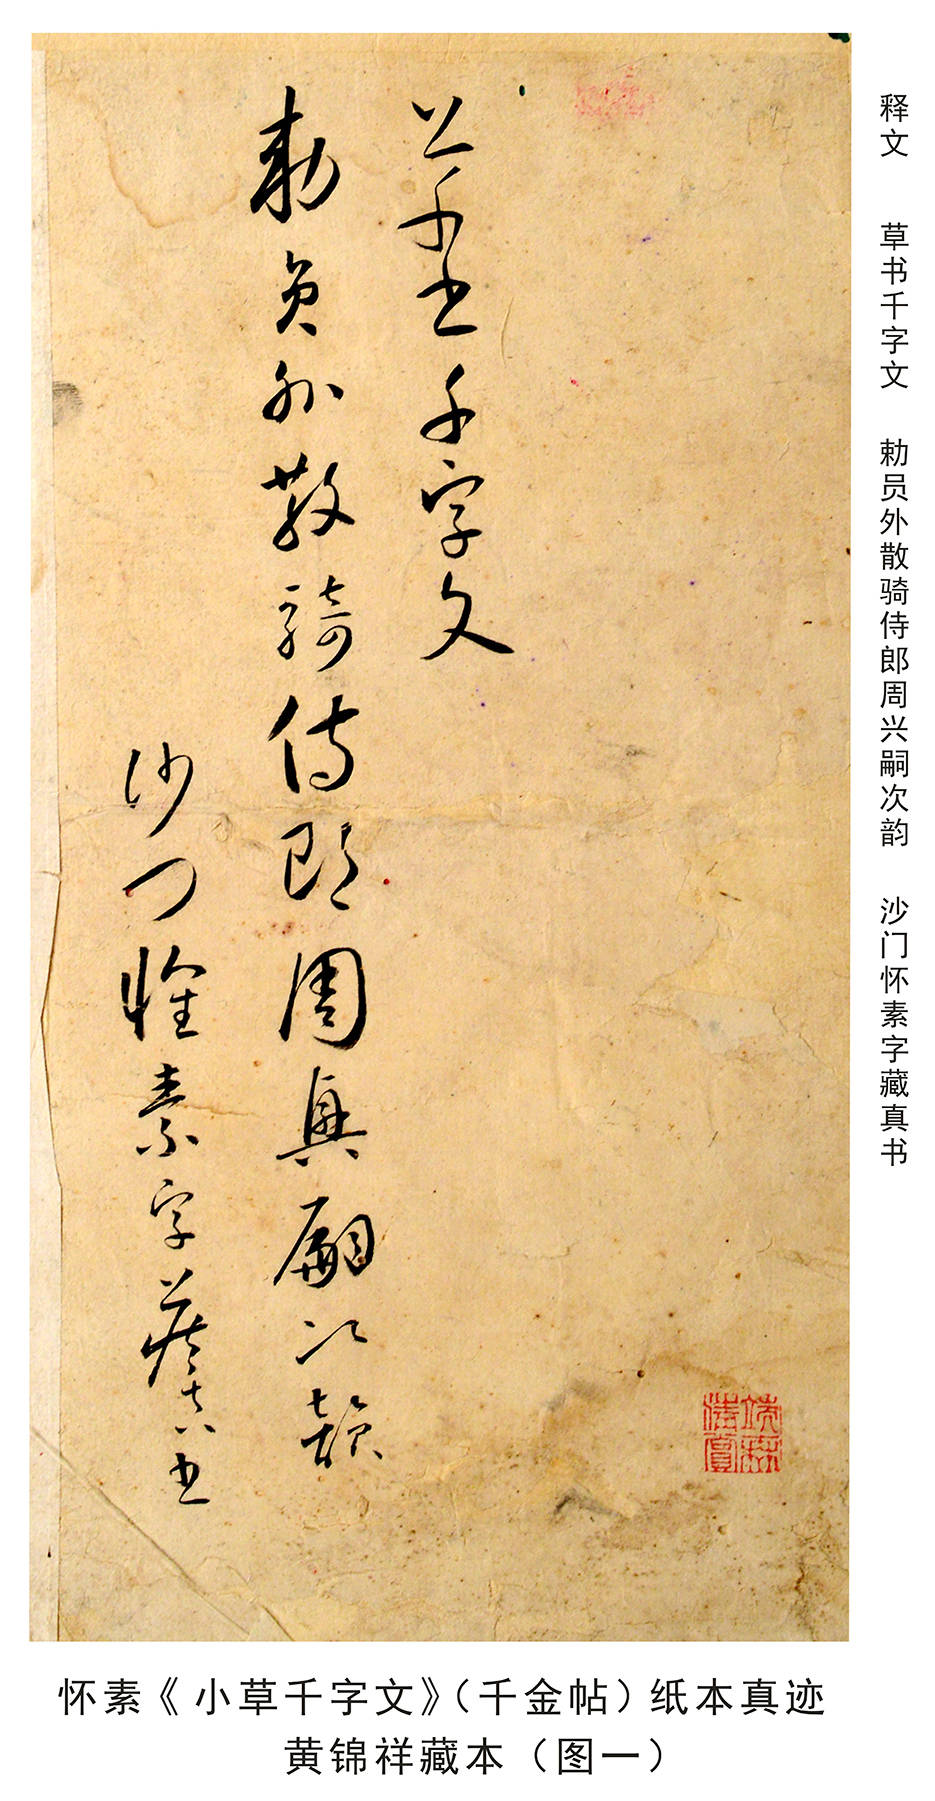 草书千字文
勅員外散騎侍郎周興嗣次韻
沙门懷素字藏真书
释文 草书千字文 勅员外散骑侍郎周兴嗣次韵 沙门怀素字藏真书
怀素《小草千字文》（千金帖）纸本真迹
黄锦祥藏本（图一）